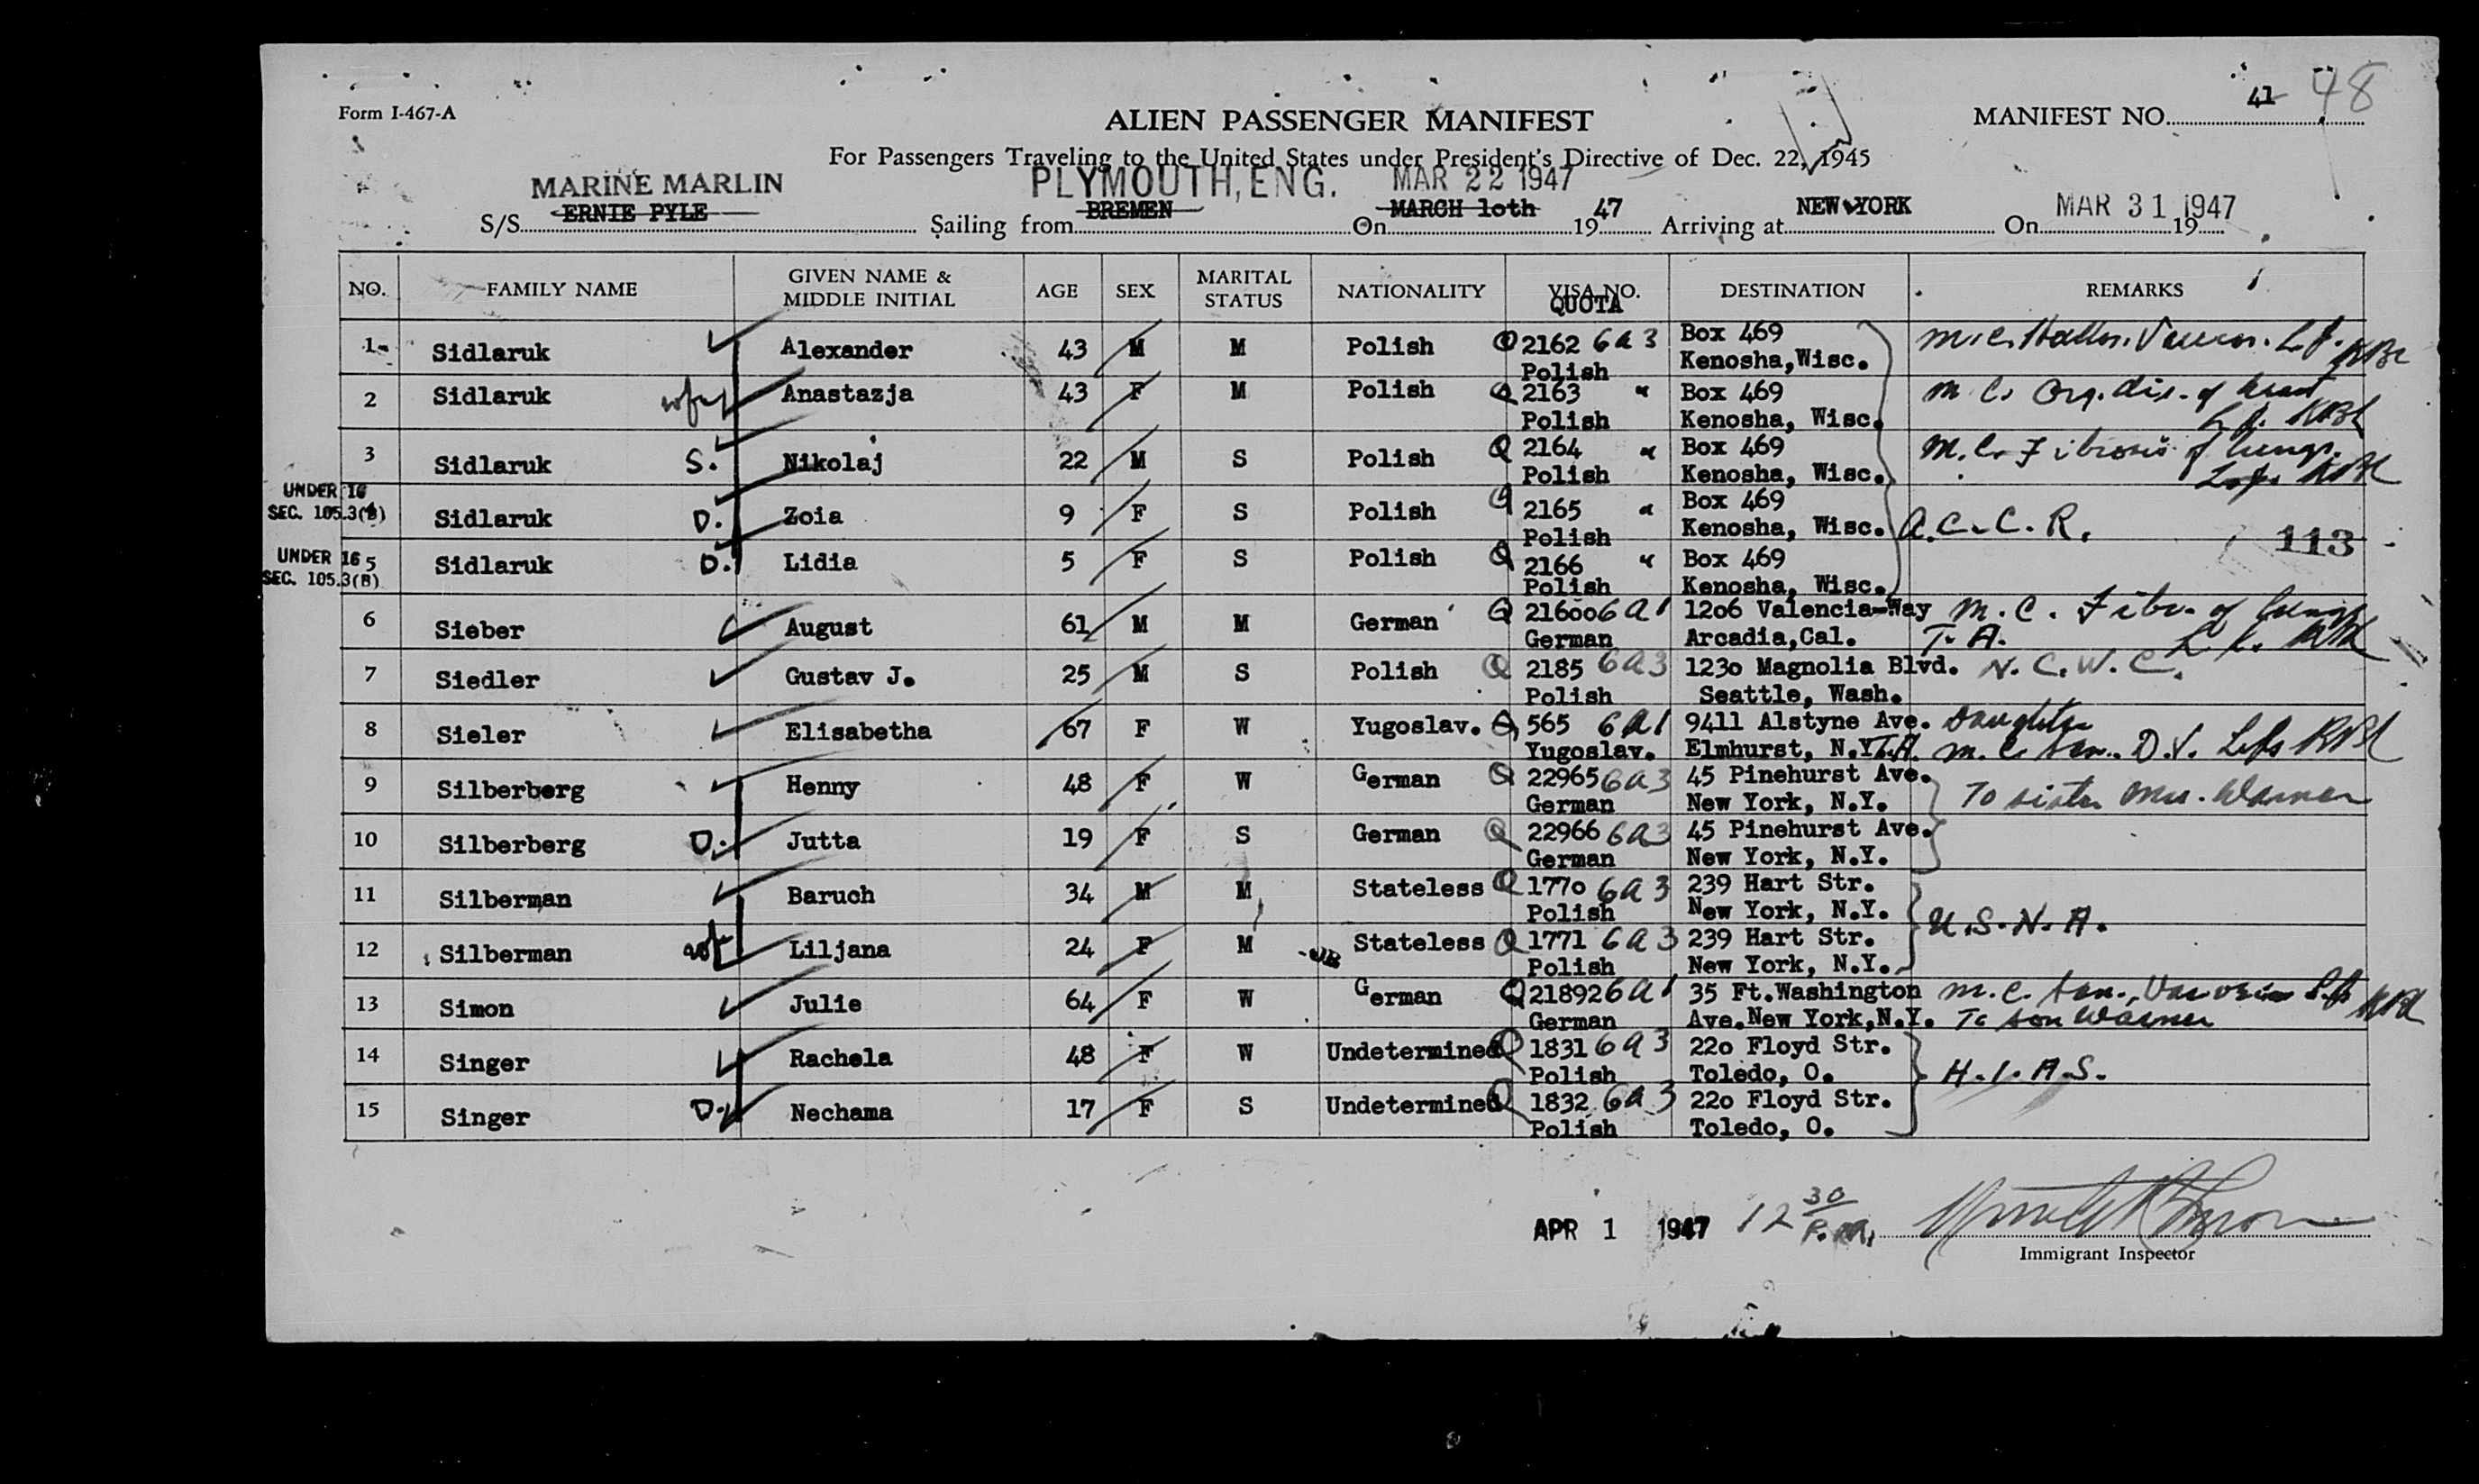 Form I-467-A
ALIEN PASSENGER MANIFEST
MANIFEST NO. 41 48
For Passengers Traveling to the United States under President's Directive of Dec. 22, 1945
MARINE MARLIN PLYMOUTH, ENG. MAR 22 1947
S/S ERNIE PYLE Sailing from BREMEN On MARCH 1oth 19 47 Arriving at NEW YORK On MAR 31 1947 19
NO. FAMILY NAME GIVEN NAME & MIDDLE INITIAL AGE SEX MARITAL STATUS NATIONALITY VISA NO. QUOTA DESTINATION REMARKS
1- Sidlaruk Alexander 43 M M Polish Q 2162 6a3 Box 469
Polish Kenosha,Wisc.
2 Sidlaruk wf Anastazja 43 F M Polish Q 2163 " Box 469 M.C. Org. dis. of heart
Polish Kenosha, Wisc.
3 Sidlaruk S. Nikolaj 22 M S Polish Q 2164 " Box 469 M.C. Fibrosis of lungs.
Polish Kenosha, Wisc.
UNDER 16
SEC. 105.3(B) 4 Sidlaruk D. Zoia 9 F S Polish Q 2165 " Box 469
Polish Kenosha, Wisc. A.C.C.R. 113
UNDER 16
SEC. 105.3(B) 5 Sidlaruk D. Lidia 5 F S Polish Q 2166 " Box 469
Polish Kenosha, Wisc.
6 Sieber August 61 M M German Q 21600 6a1 1206 Valencia-Way M.C. Fibr. of lungs
German Arcadia,Cal. T.A.
7 Siedler Gustav J. 25 M S Polish Q 2185 6a3 1230 Magnolia Blvd. N.C.W.C.
Polish Seattle, Wash.
8 Sieler Elisabetha 67 F W Yugoslav. Q 565 6a1 9411 Alstyne Ave. Daughter
Yugoslav. Elmhurst, N.Y. T.A. M.C. Sen. D.V.
9 Silberberg Henny 48 F W German Q 22965 6a3 45 Pinehurst Ave.
German New York, N.Y. To sister Mrs. Warner
10 Silberberg D. Jutta 19 F S German Q 22966 6a3 45 Pinehurst Ave.
German New York, N.Y.
11 Silberman Baruch 34 M M Stateless Q 1770 6a3 239 Hart Str.
Polish New York, N.Y. U.S.N.A.
12 Silberman wf Liljana 24 F M Stateless Q 1771 6a3 239 Hart Str.
Polish New York, N.Y.
13 Simon Julie 64 F W German Q 21892 6a1 35 Ft.Washington M.C. Sen.,
German Ave.New York,N.Y. To son Warner
14 Singer Rachela 48 F W Undetermined Q 1831 6a3 220 Floyd Str.
Polish Toledo, O. H.I.A.S.
15 Singer D. Nechama 17 F S Undetermined Q 1832 6a3 220 Floyd Str.
Polish Toledo, O.
APR 1 1947 12 30 P.M.
Immigrant Inspector